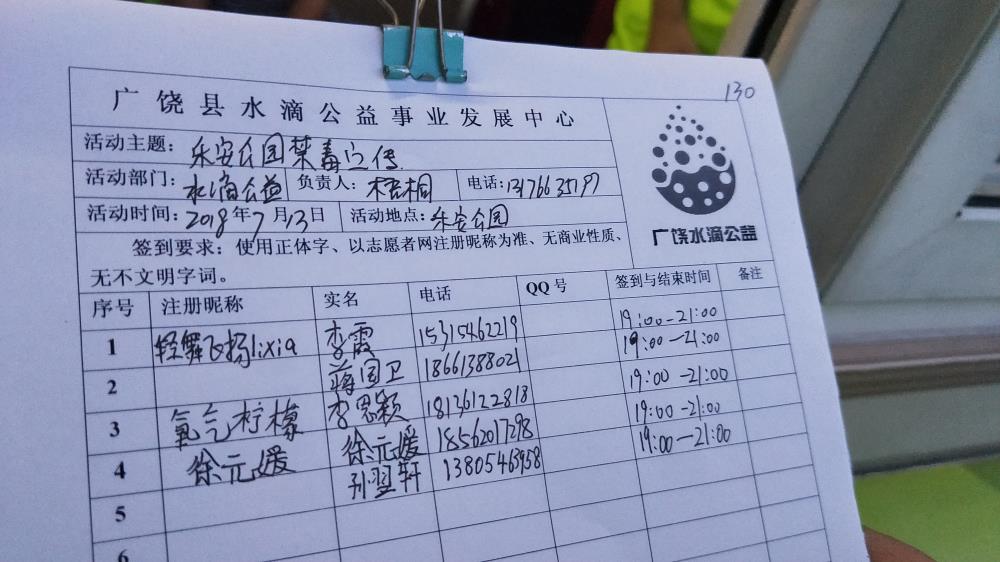 130
广饶县水滴公益事业发展中心
活动主题：乐安公园禁毒宣传
活动部门：水滴公益 负责人：梧桐 电话：
活动时间：2018年7月13日 活动地点：乐安公园
签到要求：使用正体字、以志愿者网注册昵称为准、无商业性质、
无不文明字词。
广饶水滴公益
序号 注册昵称 实名 电话 QQ号 签到与结束时间 备注
1 轻舞飞扬lixia 李霞 15315462219 19:00-21:00
2 蒋国卫 18661388021 19:00-21:00
3 氧气柠檬 李思颖 18136122818 19:00-21:00
4 徐元媛 徐元媛 18562017298 19:00-21:00
5 孙翌轩 13805463958 19:00-21:00
6